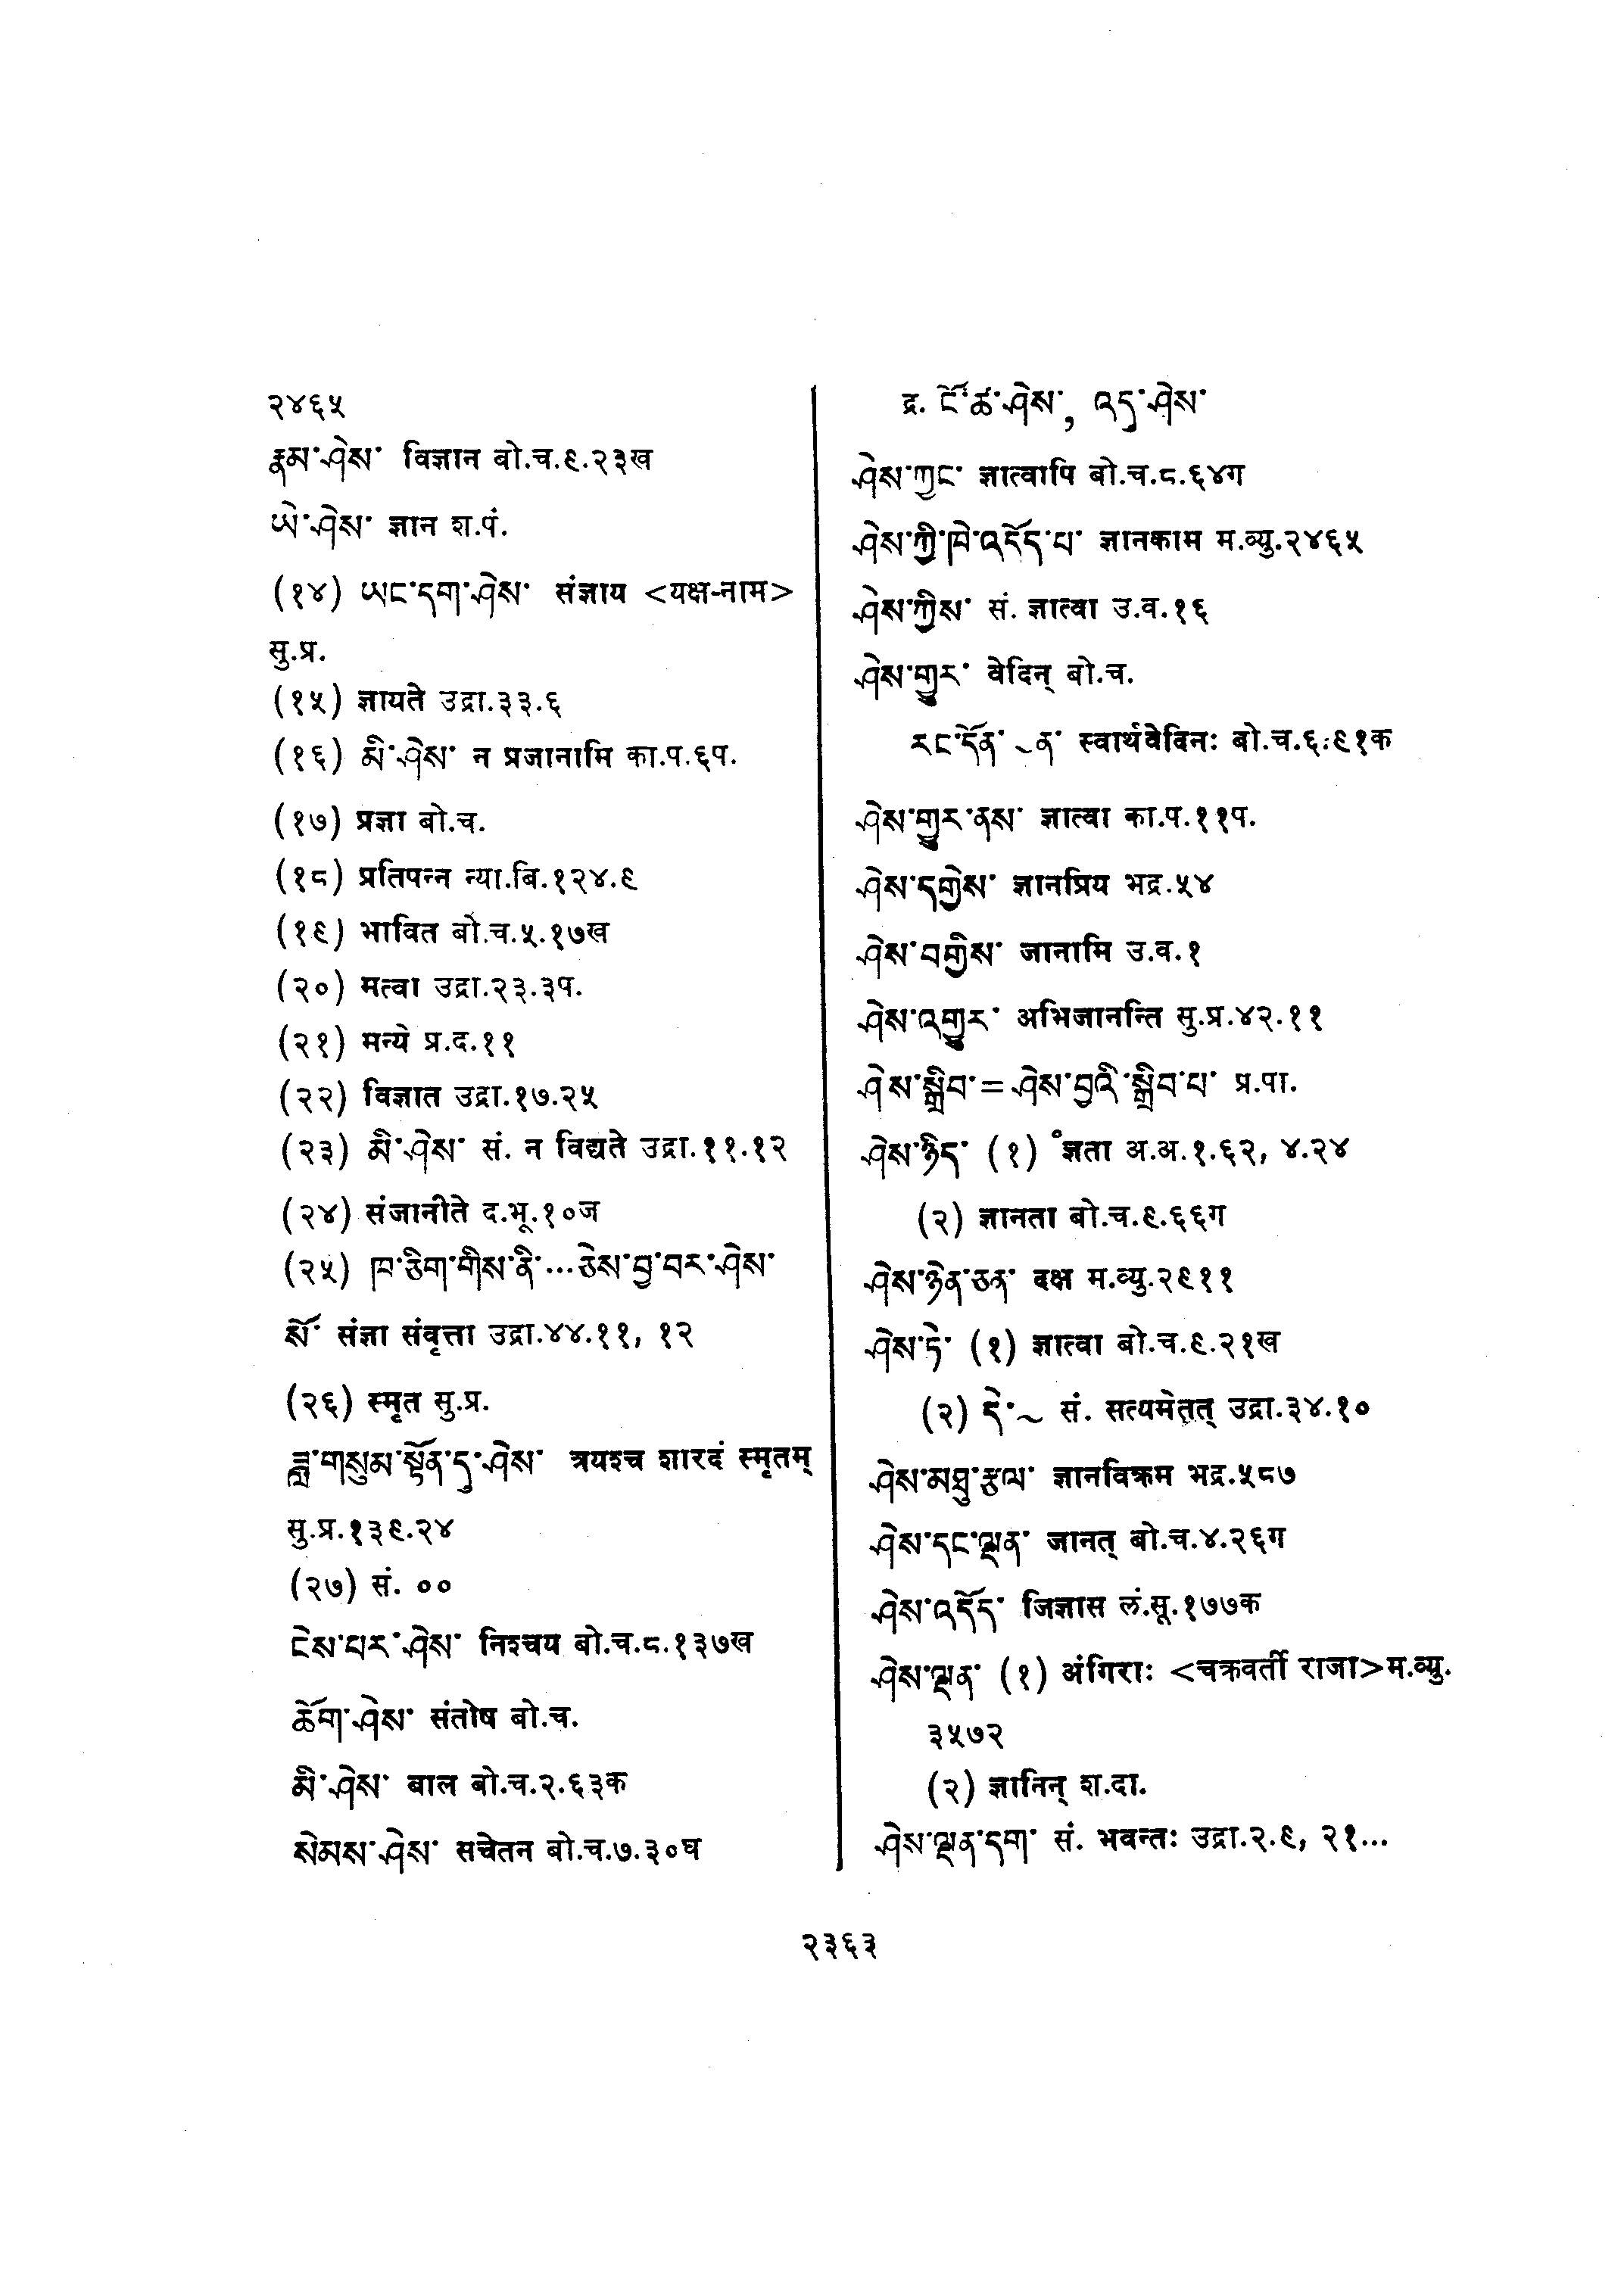 २४६५
རྣམ་ཤེས་ विज्ञान बो.च.९.२३ख
ཡེ་ཤེས་ ज्ञान श.पं.
(१४) ཡང་དག་ཤེས་ संज्ञाय <यक्ष-नाम>
सु.प्र.
(१५) ज्ञायते उद्रा.३३.६
(१६) མི་ཤེས་ न प्रजानामि का.प.६प.
(१७) प्रज्ञा बो.च.
(१८) प्रतिपन्न न्या.बि.१२४.९
(१९) भावित बो.च.५.१७ख
(२०) मत्वा उद्रा.२३.३प.
(२१) मन्ये प्र.द.११
(२२) विज्ञात उद्रा.१७.२५
(२३) མི་ཤེས་ सं. न विद्यते उद्रा.११.१२
(२४) संजानीते द.भू.१०ज
(२५) ཁ་ཅིག་གིས་ནི་...ཅེས་བྱ་བར་ཤེས་
སོ་ संज्ञा संवृत्ता उद्रा.४४.११, १२
(२६) स्मृत सु.प्र.
ཟླ་གསུམ་སྟོན་དུ་ཤེས་ त्रयश्च शारदं स्मृतम्
सु.प्र.१३९.२४
(२७) सं. ००
ངེས་པར་ཤེས་ निश्चय बो.च.८.१३७ख
ཆོག་ཤེས་ संतोष बो.च.
མི་ཤེས་ बाल बो.च.२.६३क
སེམས་ཤེས་ सचेतन बो.च.७.३०घ
द्र. ངོ་ཚ་ཤེས་, འདུ་ཤེས་
ཤེས་ཀྱང་ ज्ञात्वापि बो.च.८.६४ग
ཤེས་ཀྱི་ཁེ་འདོད་པ་ ज्ञानकाम म.व्यु.२४६५
ཤེས་ཀྱིས་ सं. ज्ञात्वा उ.व.१६
ཤེས་གྱུར་ वेदिन् बो.च.
རང་དོན་ ~ན་ स्वार्थवेदिनः बो.च.६.९१क
ཤེས་གྱུར་ནས་ ज्ञात्वा का.प.११प.
ཤེས་དགྱེས་ ज्ञानप्रिय भद्र.५४
ཤེས་བགྱིས་ जानामि उ.व.१
ཤེས་འགྱུར་ अभिजानन्ति सु.प्र.४२.११
ཤེས་སྒྲིབ་=ཤེས་བྱའི་སྒྲིབ་པ་ प्र.पा.
ཤེས་ཉིད་ (१) ॰ज्ञता अ.अ.१.६२, ४.२४
(२) ज्ञानता बो.च.९.६६ग
ཤེས་ཉེན་ཅན་ दक्ष म.व्यु.२९११
ཤེས་ཏེ་ (१) ज्ञात्वा बो.च.९.२१ख
(२) དེ་~ सं. सत्यमेतत् उद्रा.३४.१०
ཤེས་མཐུ་རྩལ་ ज्ञानविक्रम भद्र.५८७
ཤེས་དང་ལྡན་ जानत् बो.च.४.२६ग
ཤེས་འདོད་ जिज्ञास लं.सू.१७७क
ཤེས་ལྡན་ (१) अंगिराः <चक्रवर्ती राजा>म.व्यु.
३५७२
(२) ज्ञानिन् श.दा.
ཤེས་ལྡན་དག་ सं. भवन्तः उद्रा.२.९, २१...
२३६३